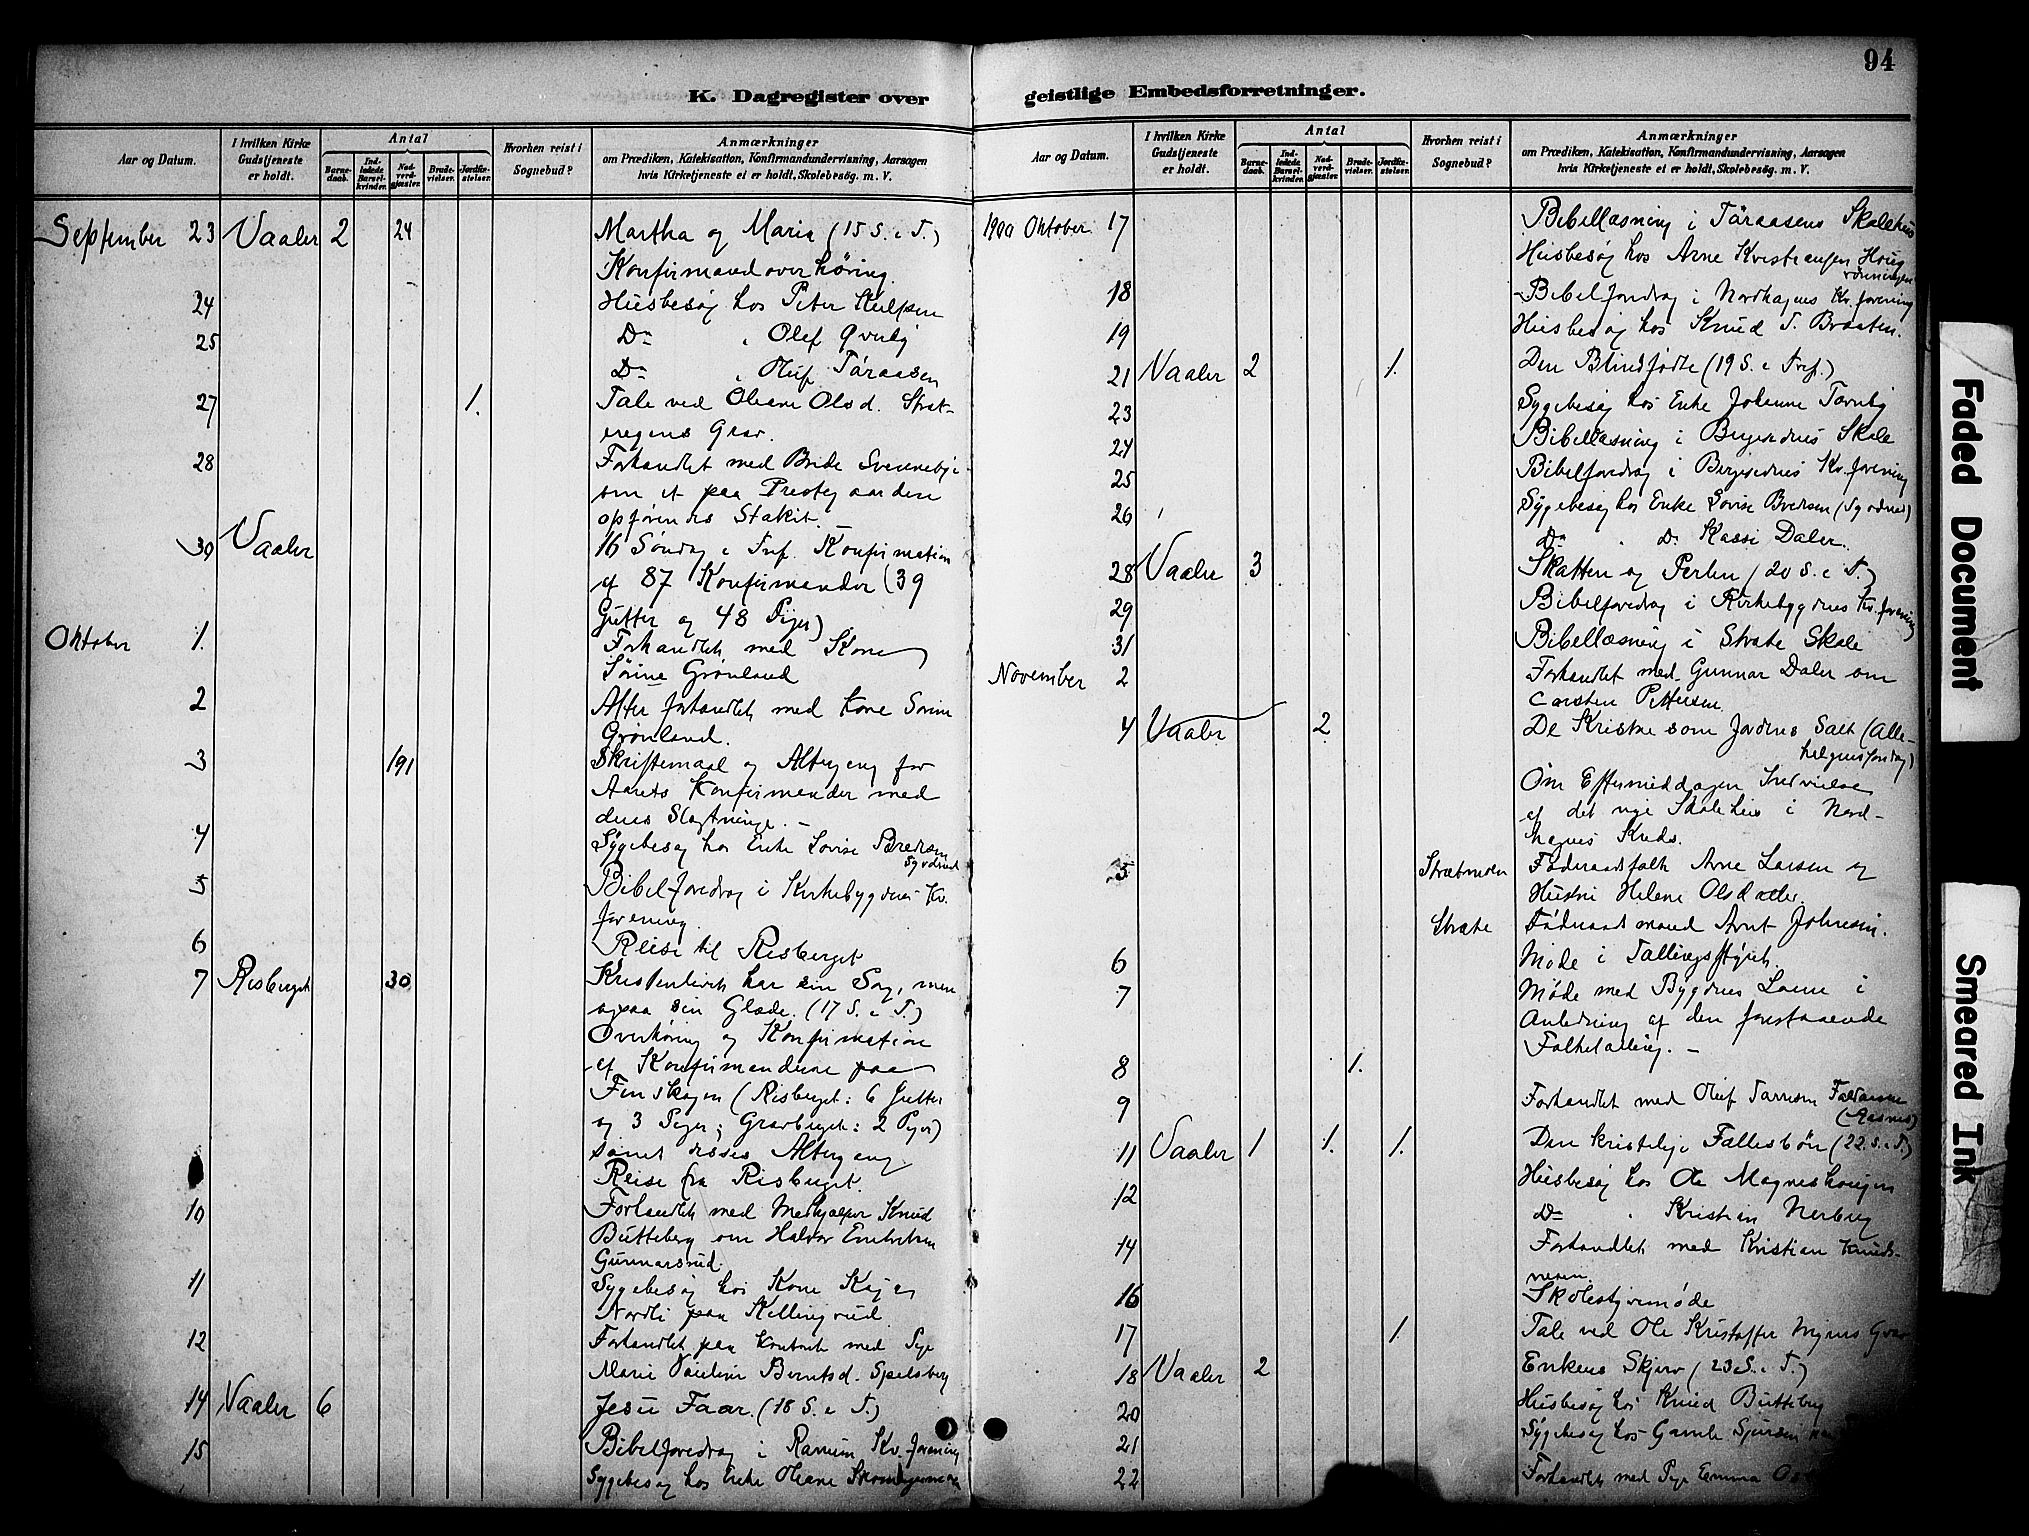 94
K. Dagregister over geistlige Embedsforretninger.
Aar og Datum.
I hvilken Kirke Gudstjeneste er holdt.
Antal
Barnedaab.
Indledede Barselkvinder.
Nadverdgjæster.
Brudevielser.
Jordfæstelser.
Hvorhen reist i Sognebud?
Anmærkninger
om Prædiken, Katekisation, Konfirmandundervisning, Aarsagen
hvis Kirketjeneste ei er holdt, Skolebesøg. m. V.
September 23 Vaaler 2 24 Martha og Maria (15 S. e T.)
Konfirmandoverhøring
24 Husbesøg hos Peter
25 Do Olef Qvœby
Do Oluf Töraasen
27 1. Tale ved Oleane Olsd. Strat-
eregens Grav.
28 Forhandlet med Brede Svenneby
om et paa Prestegaarden
opførendes Stakit. –
30 Vaaler 16 Søndag e Tref. Konfirmation
af 87 Konfirmander (39
Gutter og 48 Piger)
Oktober 1. Forhandlet med Kone
Sörine Grönland
2 Atter forhandlet med Kone Sorine
Grönland.
3 191 Skriftemaal og Altergang for
Aarets Konfirmander med
deres Slægtninge. –
4 Sygebesøg hos Enke Lovise Bredesen
5 Bibelforedrag i Kirkebygdens Kv.
forening
6 Reise til Risberget
7 Risberget 30 Kristenlivet har sin Sorg, men
ogsaa sin Glæde. (17 S. e T.)
Overhøring og Konfirmation
af Konfirmanderne paa
Finskogen (Risberget: 6 Gutter
og 3 Piger; Gravberget: 2 Piger)
samt disses Altergang
Reise fra Risberget.
10 Forhandlet med Medhjælper Knud
Butteberg om Halvor
Gunnarsrud.
11 Sygebesøg hos Kone Kajsa
Nordli paa Kellingrud
12 Forhandlet paa Kontoret med Pige
Marie Berntsd. Spelsberg
14 Vaaler 6 Jesu Faar. (18 S. e T.)
15 Bibelforedrag i Ranum Kv. forening
Sygebesøg hos Enke Oleane
Aar og Datum.
I hvilken Kirke Gudstjeneste er holdt.
Antal
Barnedaab.
Indledede Barselkvinder.
Nadverdgjæster.
Brudevielser.
Jordfæstelser.
Hvorhen reist i Sognebud?
Anmærkninger
om Prædiken, Katekisation, Konfirmandundervisning, Aarsagen
hvis Kirketjeneste ei er holdt, Skolebesøg. m. V.
1900 Oktober 17 Bibellæsning i Töraasens Skolehus
Husbesøg hos Arne Kristiansen Houg
rønningen
18 Bibelforedrag i Nordhagens Kv. forening
19 Husbesøg hos Knud T. Braaten.
21 Vaaler 2 1. Den Blindfødte (19 S. e Tref.)
23 Sygebesøg hos Enke Johanne
24 Bibellæsning i Skole
25 Bibelforedrag i Kv. forening
26 Sygebesøg hos Enke Lovise Bredesen
Do Do Kassi Daler.
28 Vaaler 3 Skatten og Perlen (20 S. e T.)
29 Bibelforedrag i Kirkebygdens Kv. forening
31 Bibellæsning i Stræte Skole
November 2 Forhandlet med Gunnar Daler om
Carsten Pettersen.
4 Vaaler 2 De Kristne som Jordens Salt (Alle-
helgensøndag)
Om Eftermiddagen Indvielse
af det nye Skolehus i Nord-
hagens Kreds.
5 Føderaadsfolk Arne Larsen og
Hustru Helene Olsdatter.
Stræte Føderaadsmand Arnt Johnsen.
6 Møde i
7 Møde med Bygdens Lærere i
Anledning af den forestaaende
Folketælling. –
8 1.
9 Forhandlet med Oluf
(Aasnes)
11 Vaaler 1 1. 1. Den kristelige Fællesbøn (22. S. e T.)
12 Husbesøg hos Ole Magneshaugen
Do Kristian Nerbug
14 Forhandlet med Kristian
16 Skolestyremøde
17 1. Tale ved Ole Kristoffer Grav
18 Vaaler 2 Enkens Skjærv (23 S. e T.)
20 Husbesøg hos Knud Butteberg
21 Sygebesøg hos Gamle Sjursen
22 Forhandlet med Pige Emma
Faded Document
Smeared Ink